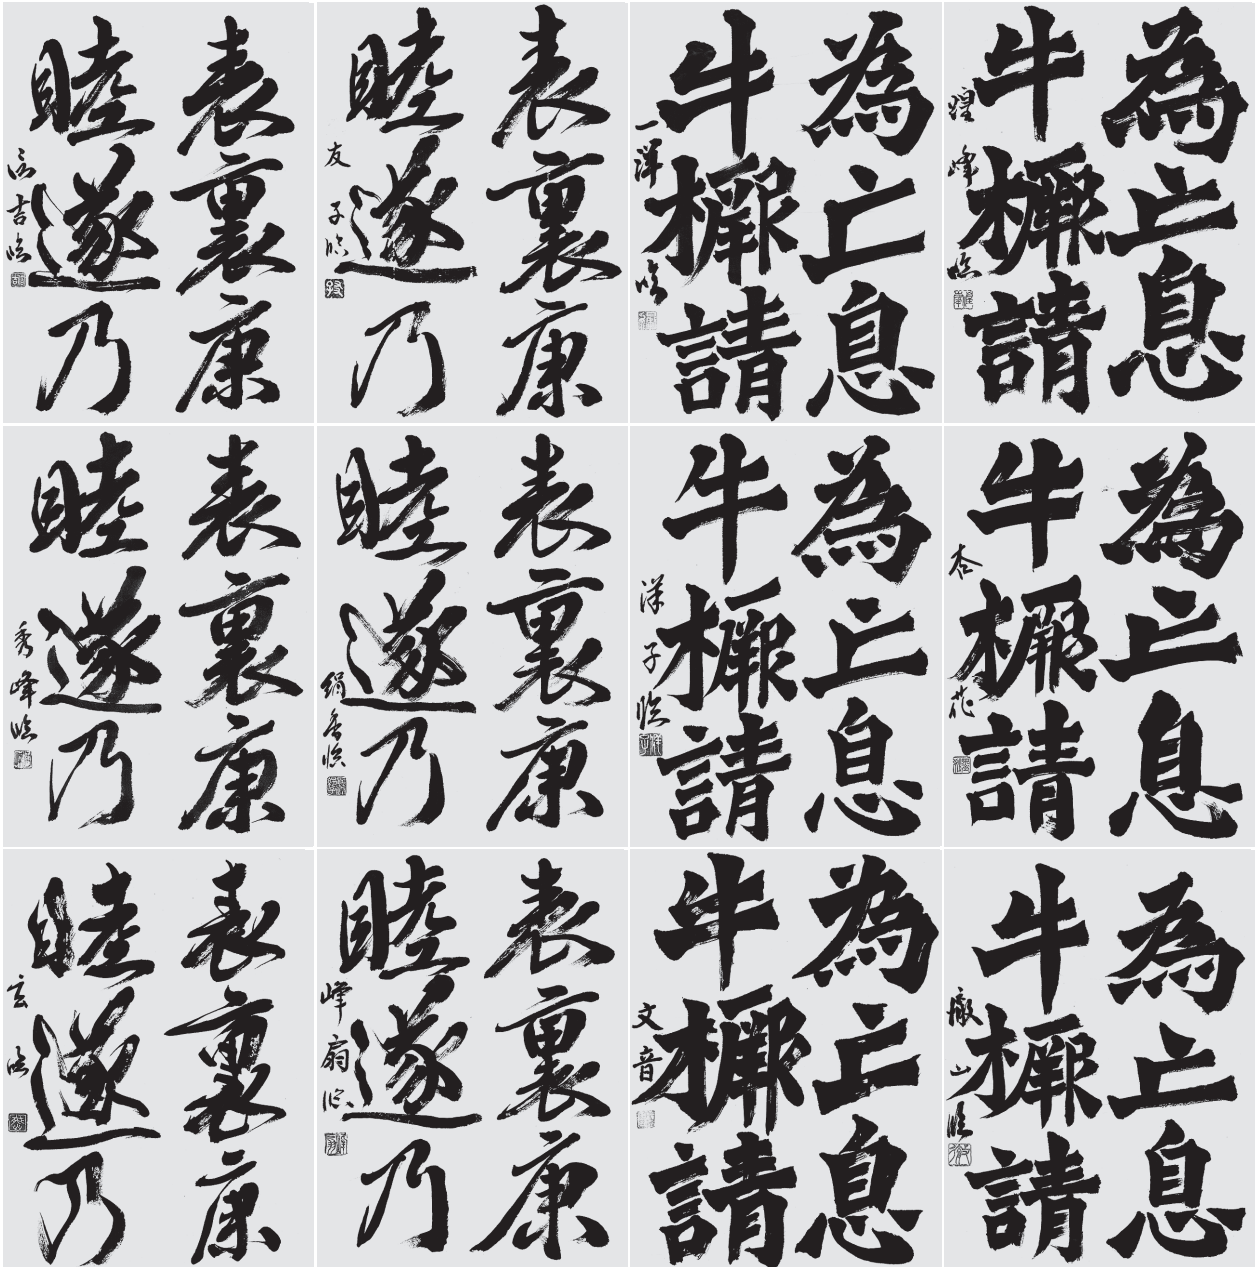 表裏康
睦遂乃
吉臨
表裏康
睦遂乃
友子臨
為亡息
牛橛請
一洋臨
為亡息
牛橛請
煌峰臨
表裏康
睦遂乃
秀峰臨
表裏康
睦遂乃
絹香臨
為亡息
牛橛請
洋子臨
為亡息
牛橛請
杏花
表裏康
睦遂乃
玄臨
表裏康
睦遂乃
峰扇臨
為亡息
牛橛請
文音
為亡息
牛橛請
山臨